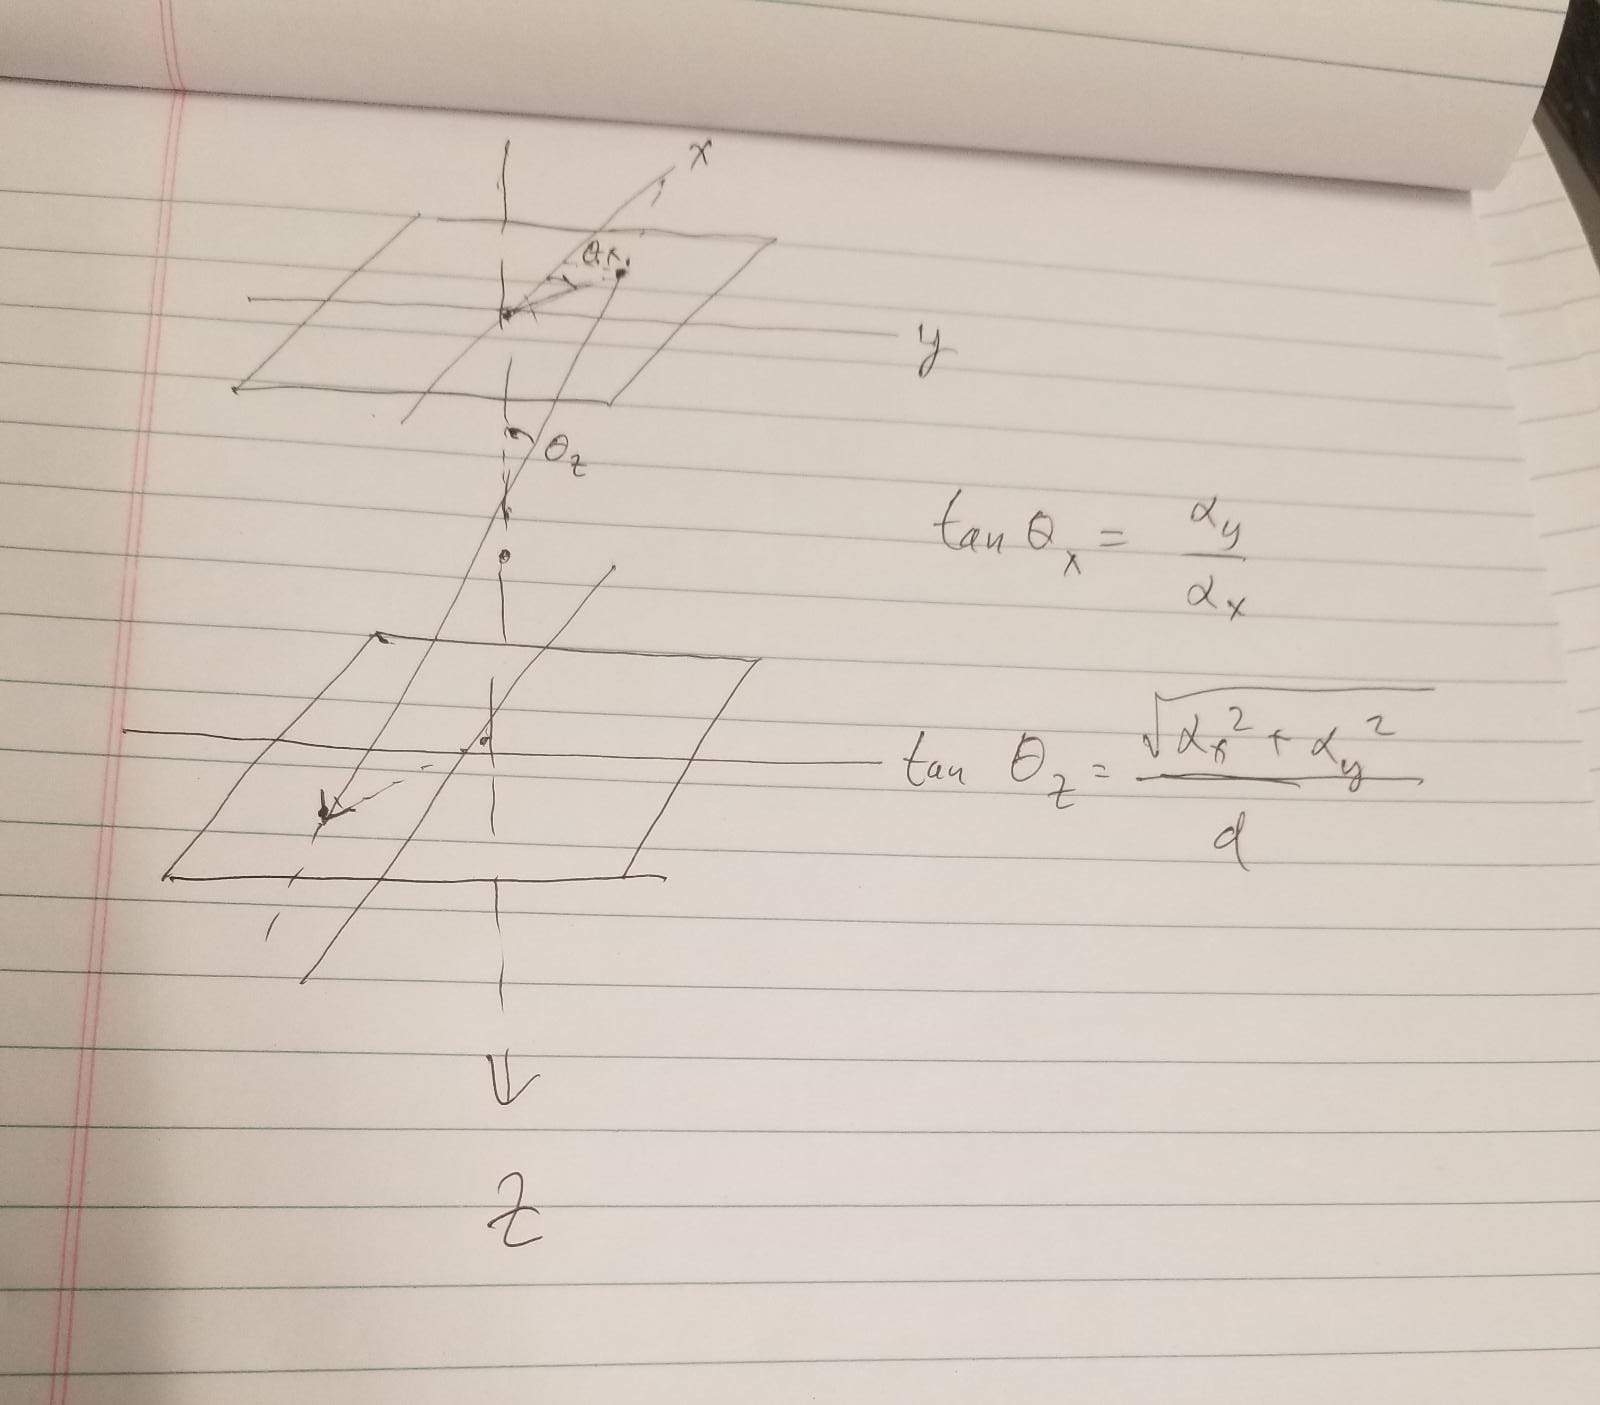 x
θx
y
θz
tan θx = αy / αx
tan θz = √(αx² + αy²) / d
z